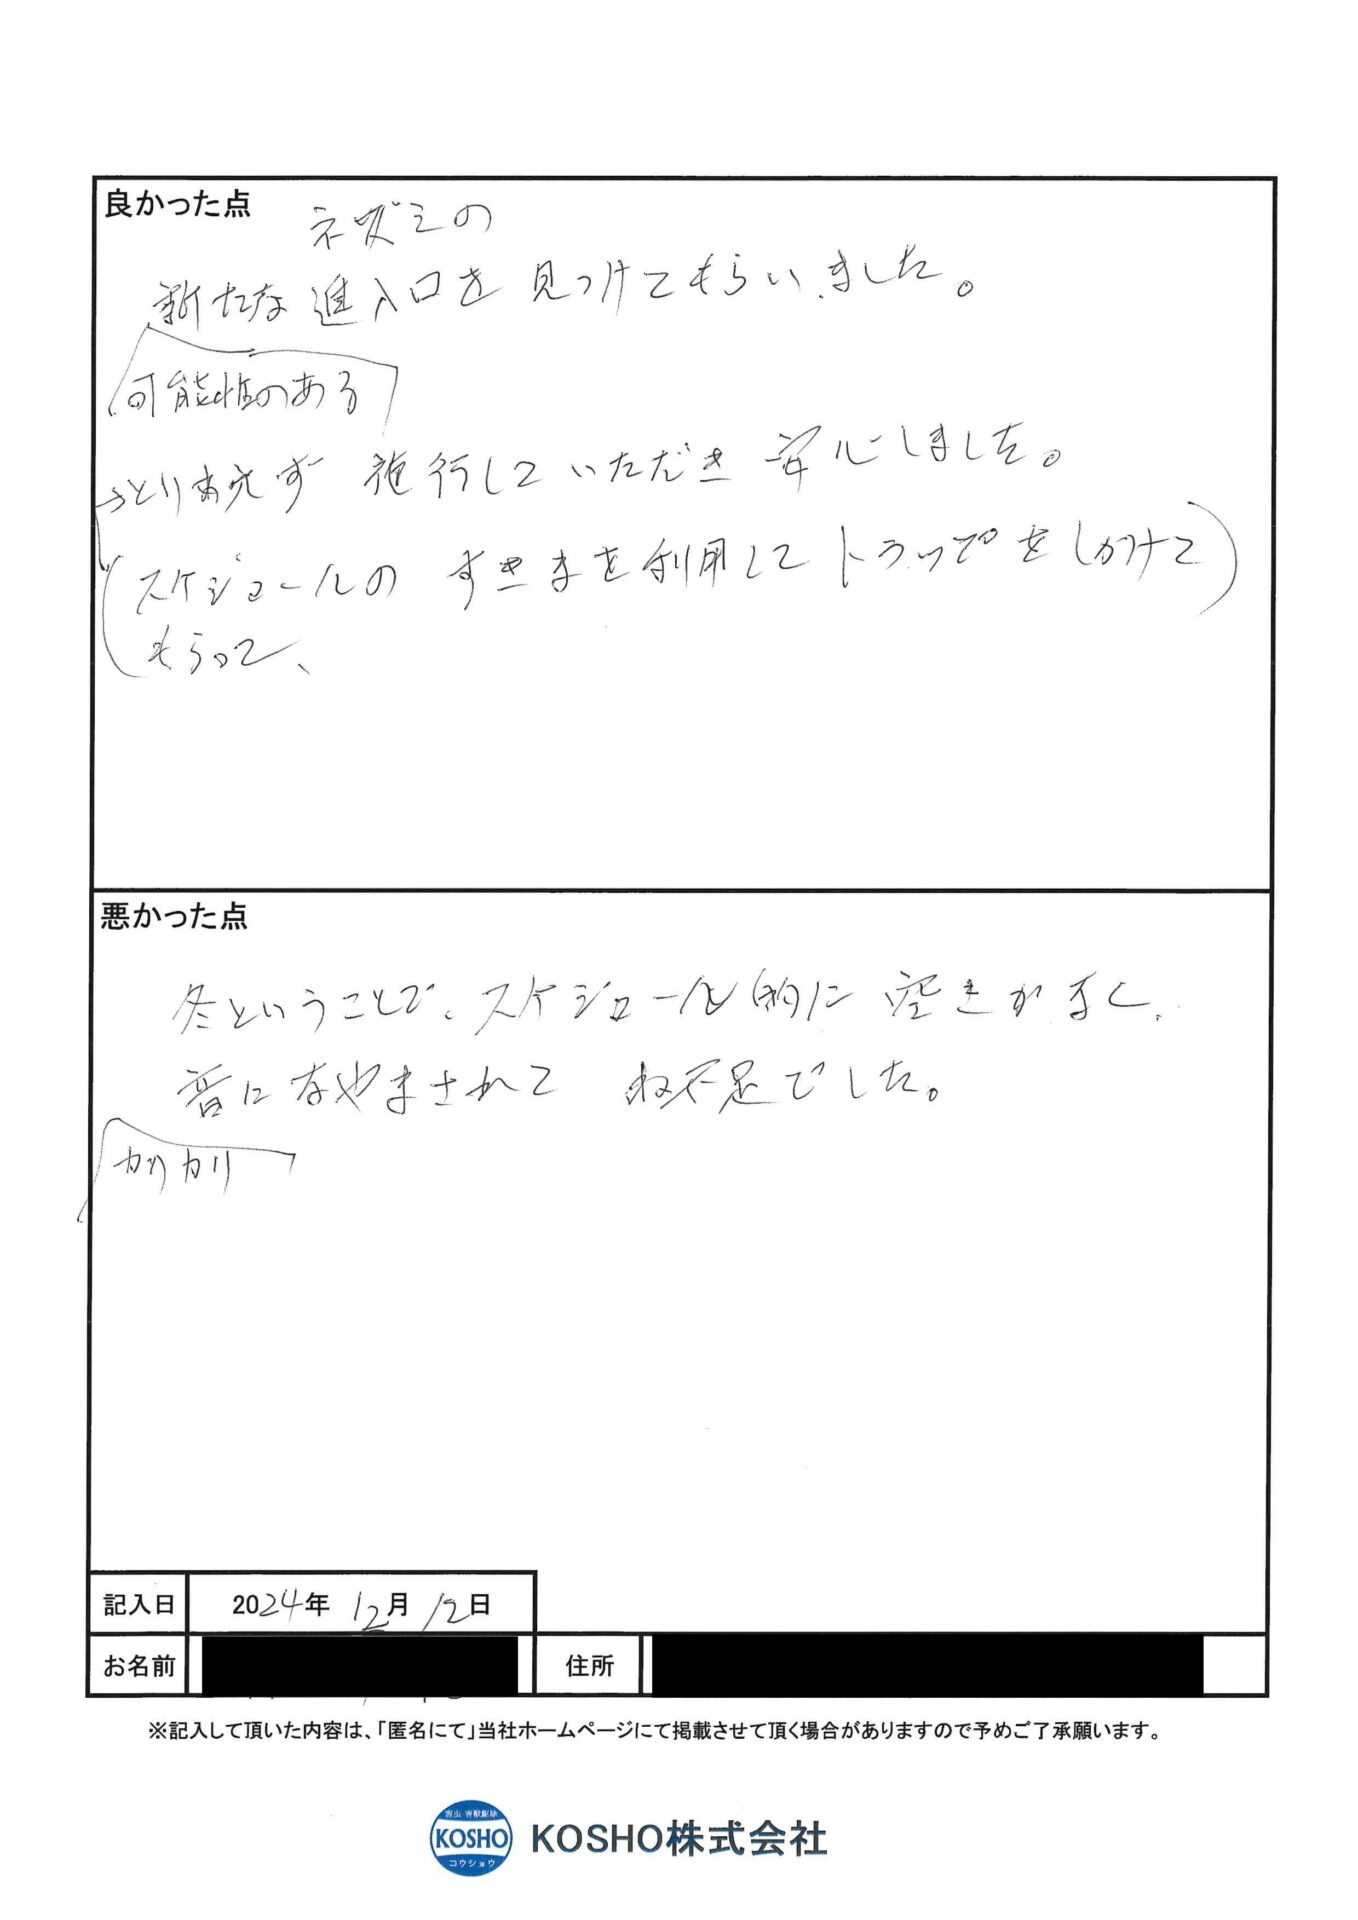 良かった点
ネズミの
新たな進入口を見つけてもらいました。
可能性のある
とりあえず 施行していただき 安心しました。
スケジュールの すきまを利用して トラップをしかけて
もらって、
悪かった点
冬ということで、スケジュール的に 空きがなく、
音になやまされて ね不足でした。
カリカリ
記入日 2024年 12月 12日
お名前 住所
※記入して頂いた内容は、「匿名にて」当社ホームページにて掲載させて頂く場合がありますので予めご了承願います。
害虫・害獣駆除
KOSHO KOSHO株式会社
コウショウ